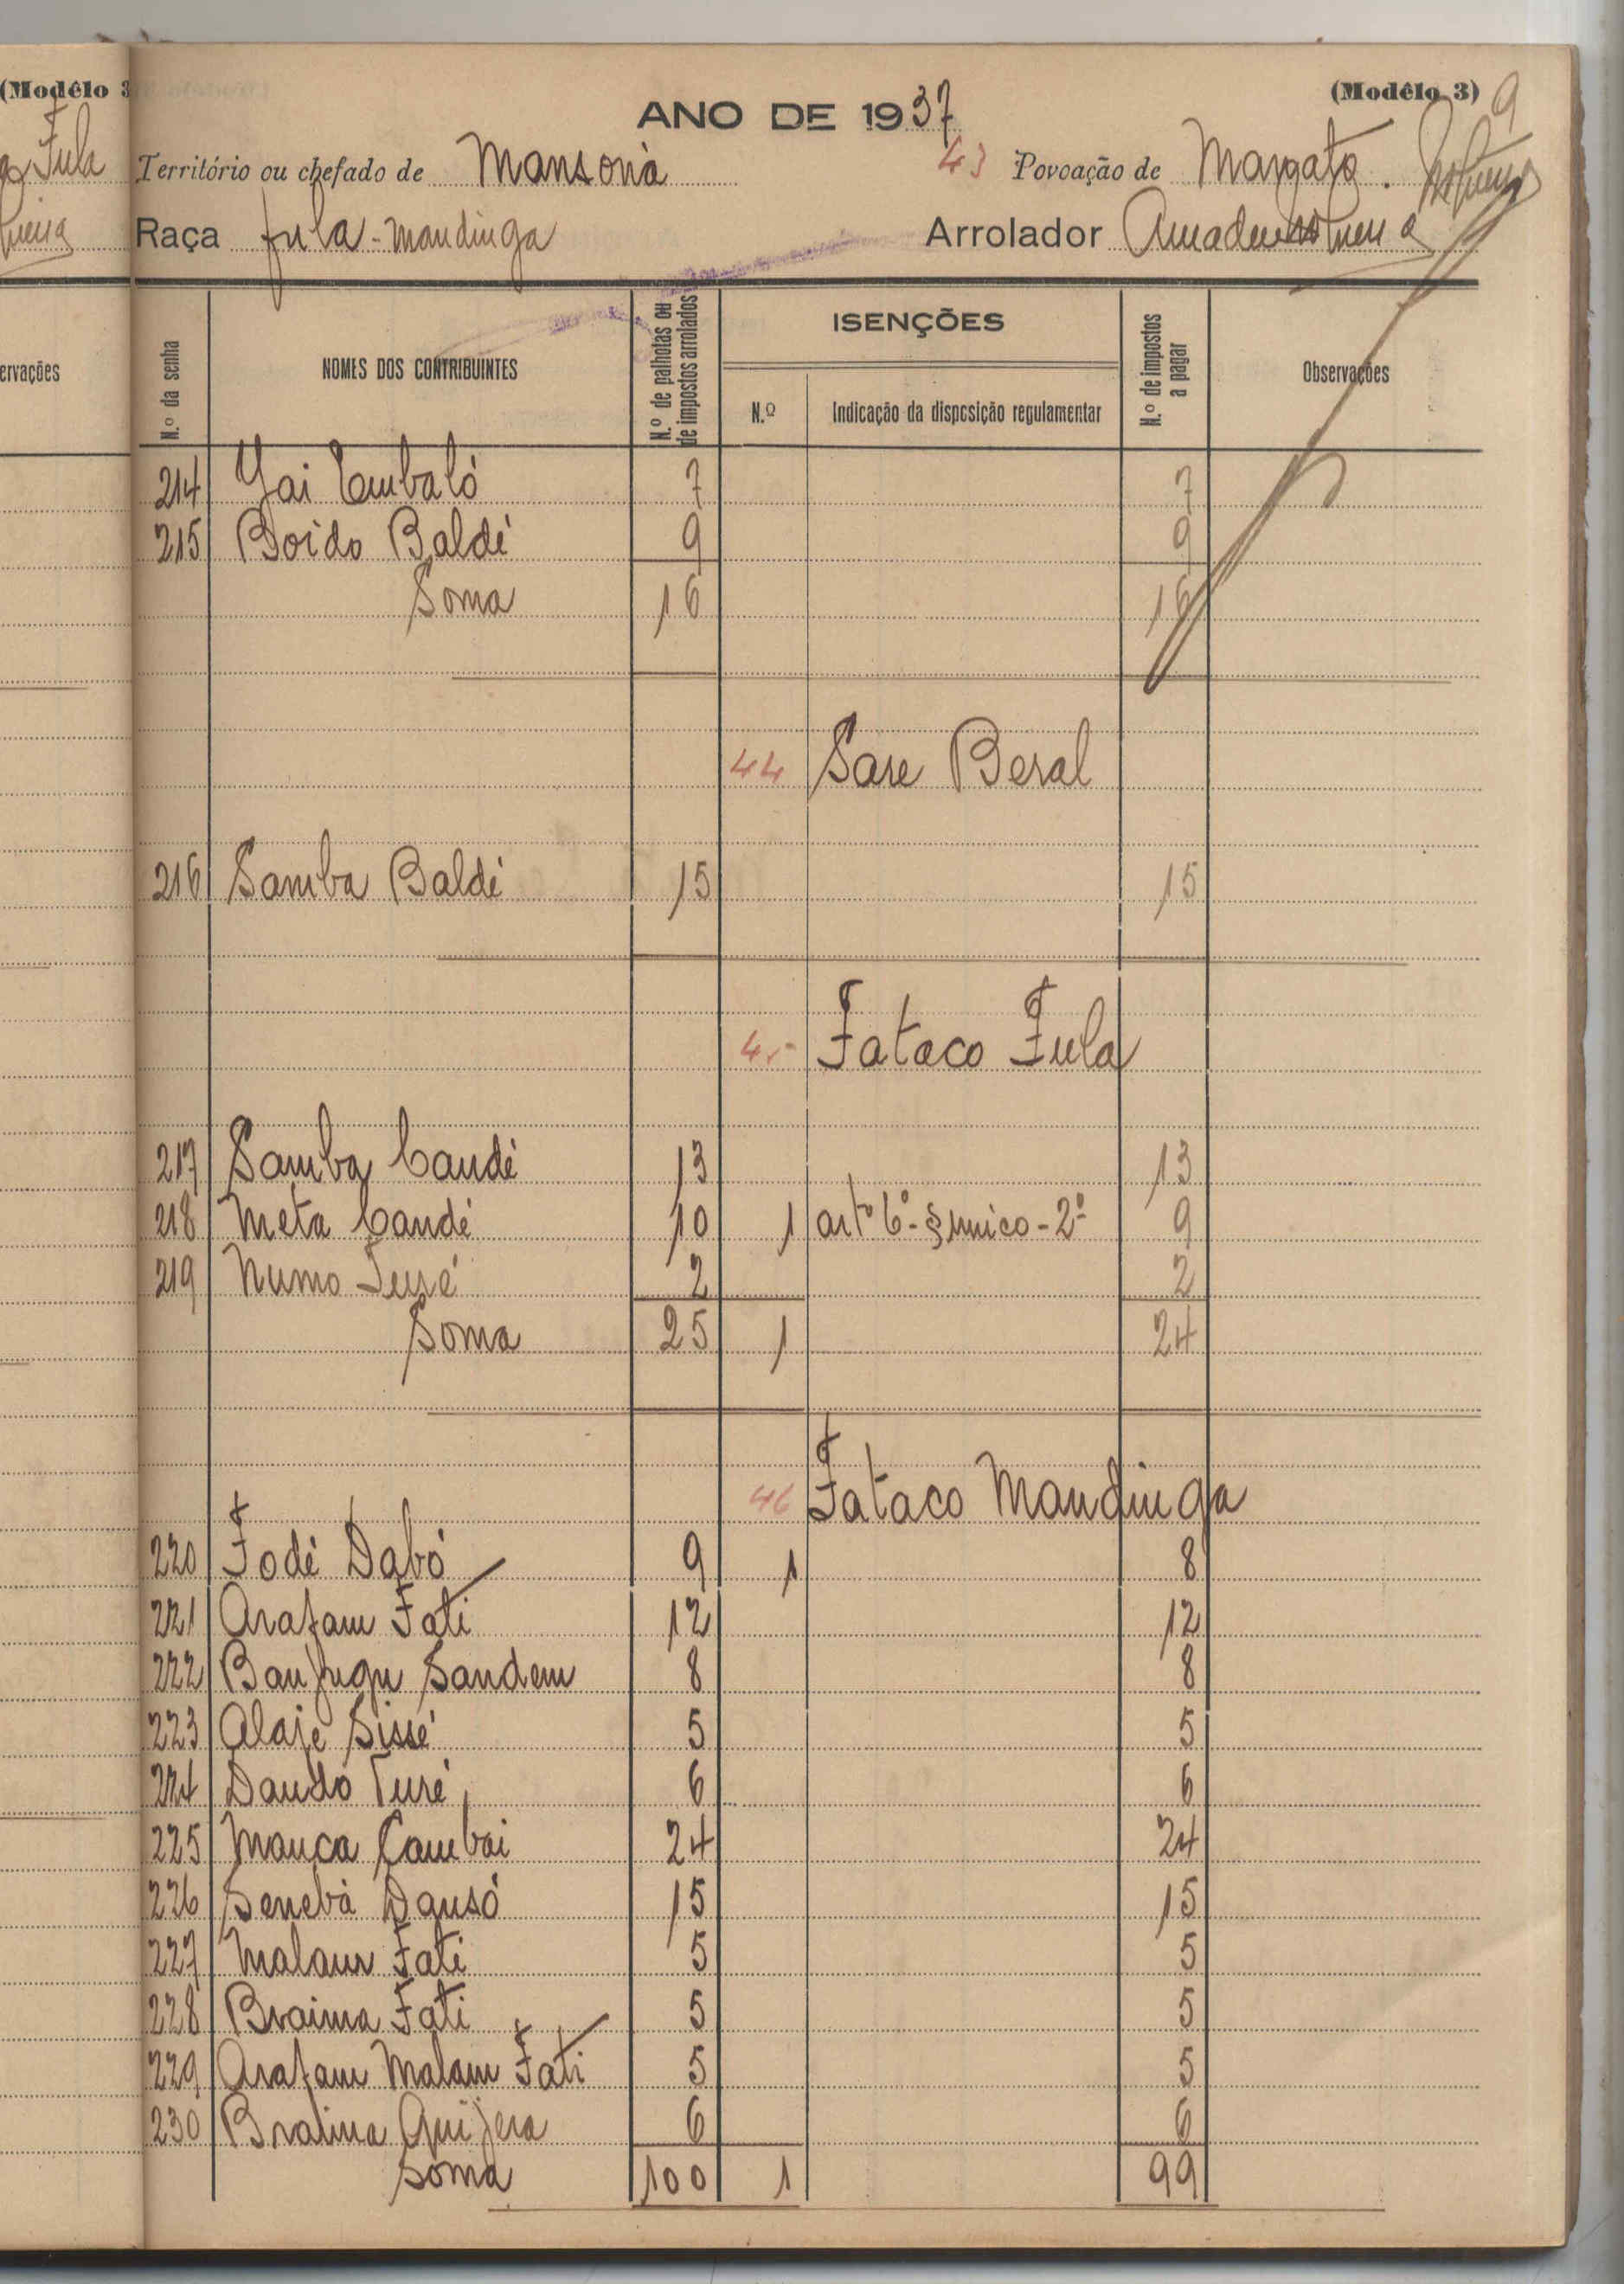 (Modêlo 3) 9
ANO DE 1937
Território ou chefado de Mansonà 43 Povoação de Margato.
Raça fula-mandinga Arrolador
N.º da senha NOMES DOS CONTRIBUINTES N.º de palhotas ou de impostos arrolados ISENÇÕES N.º de impostos a pagar Observações
N.º Indicação da disposição regulamentar
214 Embaló 7 7
215 Boido Baldé 9 9
Soma 16 16
44 Sare Beral
216 Samba Baldé 15 15
45 Fataco Fula
217 Samba Candé 13 13
218 Meta Candé 10 1 artº 6º-§ unico-2º 9
219 Numo Turé 2 2
Soma 25 1 24
46 Fataco Mandinga
220 Fodé Dabó 9 1 8
221 Arafam Fati 12 12
222 8 8
223 Alaje Sissé 5 5
224 Turé 6 6
225 Cambai 24 24
226 Senebà Dansó 15 15
227 Malam Fati 5 5
228 Braima Fati 5 5
229 Arafam Malam Fati 5 5
230 Braima Quijera 6 6
Soma 100 1 99
(Modêlo 3
Fula
ervações